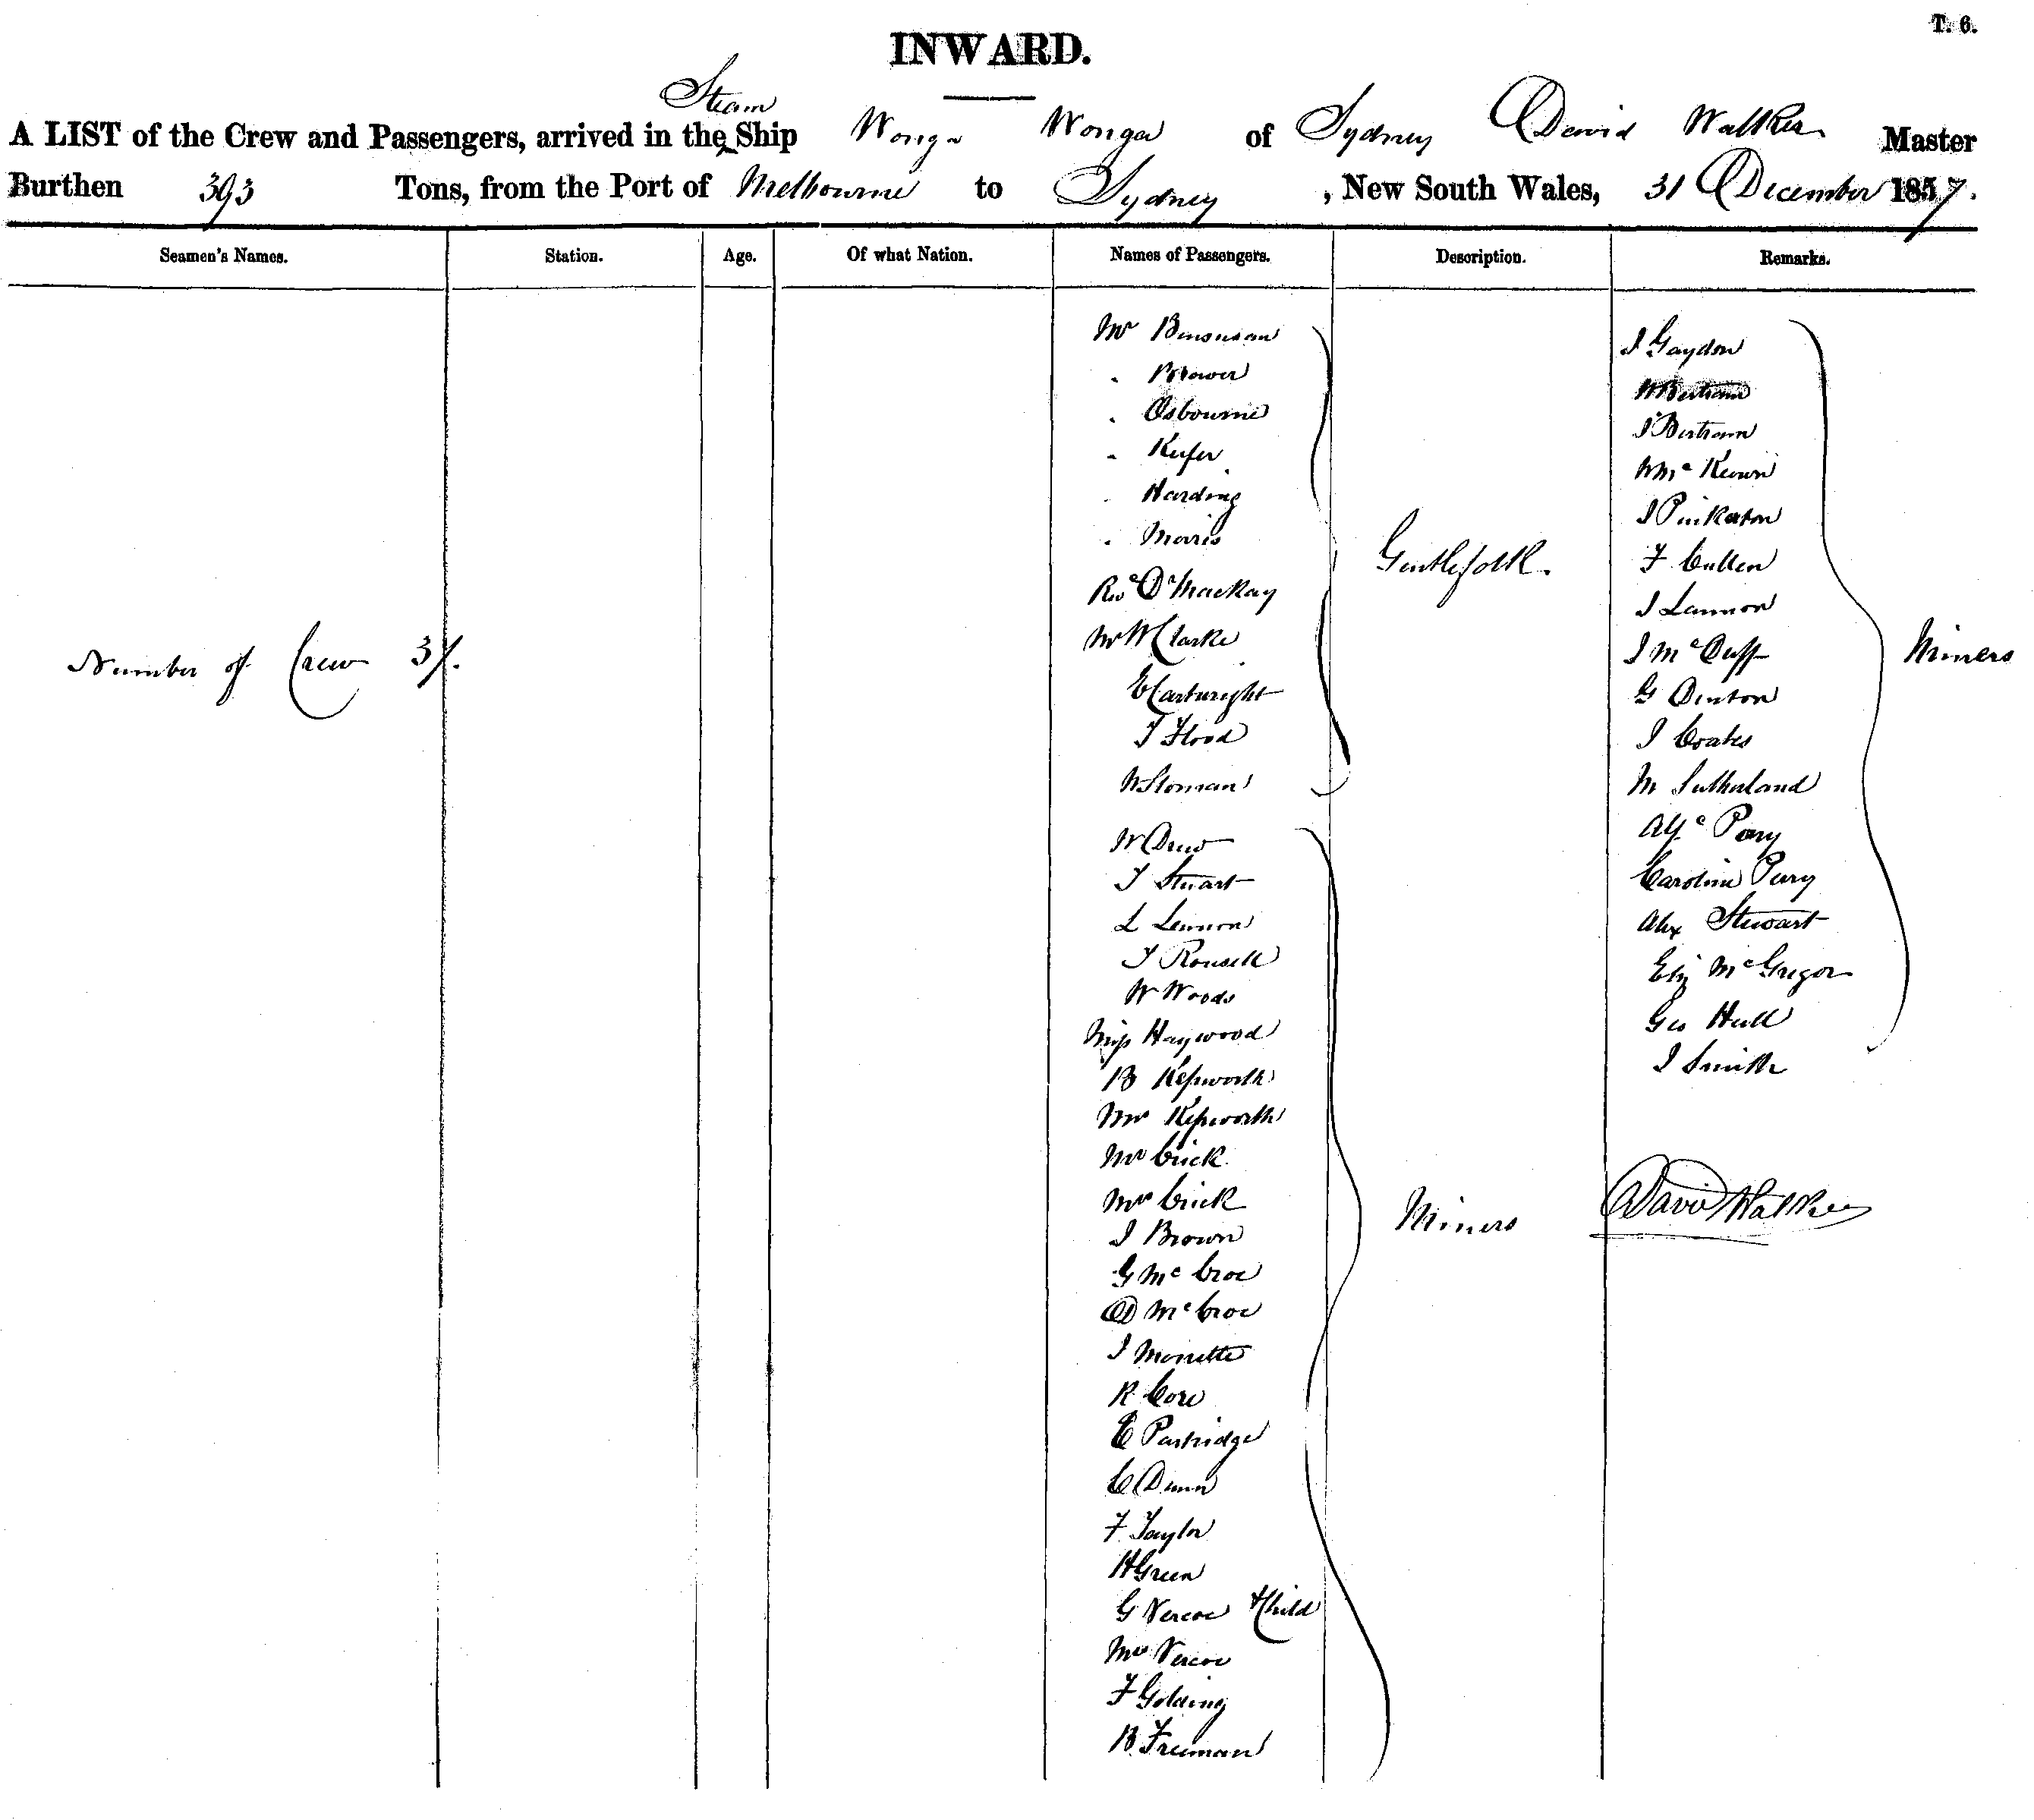 T. 6.
INWARD.
Steam
A LIST of the Crew and Passengers, arrived in the Ship Wonga Wonga of Sydney David Walker Master
Burthen 393 Tons, from the Port of Melbourne to Sydney, New South Wales, 31 December 1857.
Seamen's Names. Station. Age. Of what Nation. Names of Passengers. Description. Remarks.
Number of Crew
Mr
" Brower
" Osbourne
"
" Harding
" Morris
Revd Dr Mackay
Mr W Clarke
E Cartwright
T Flood
W Sloman
Gentlefolk.
W Drew
T Stuart
L Lennon
T Rousell
W Woods
Miss Haywood
B Hepworth
Mrs Hepworth
Mr Crick
Mrs Crick
J Brown
G McCroe
D McCroe
J
R Core
E Partridge
C Dunn
F Taylor
H Green
G Vercoe & Child
Mrs Vercoe
F Golding
B Freeman
Miners
J Gaydon
W Bertram
J Bertram
W McKeown
J Pinkerton
F Cullen
J Lannon
J McDuff
G Denton
J Coates
M Sutherland
Perry
Caroline Perry
Alex Stewart
Eliz McGregor
Geo Hull
J Smith
Miners
David Walker